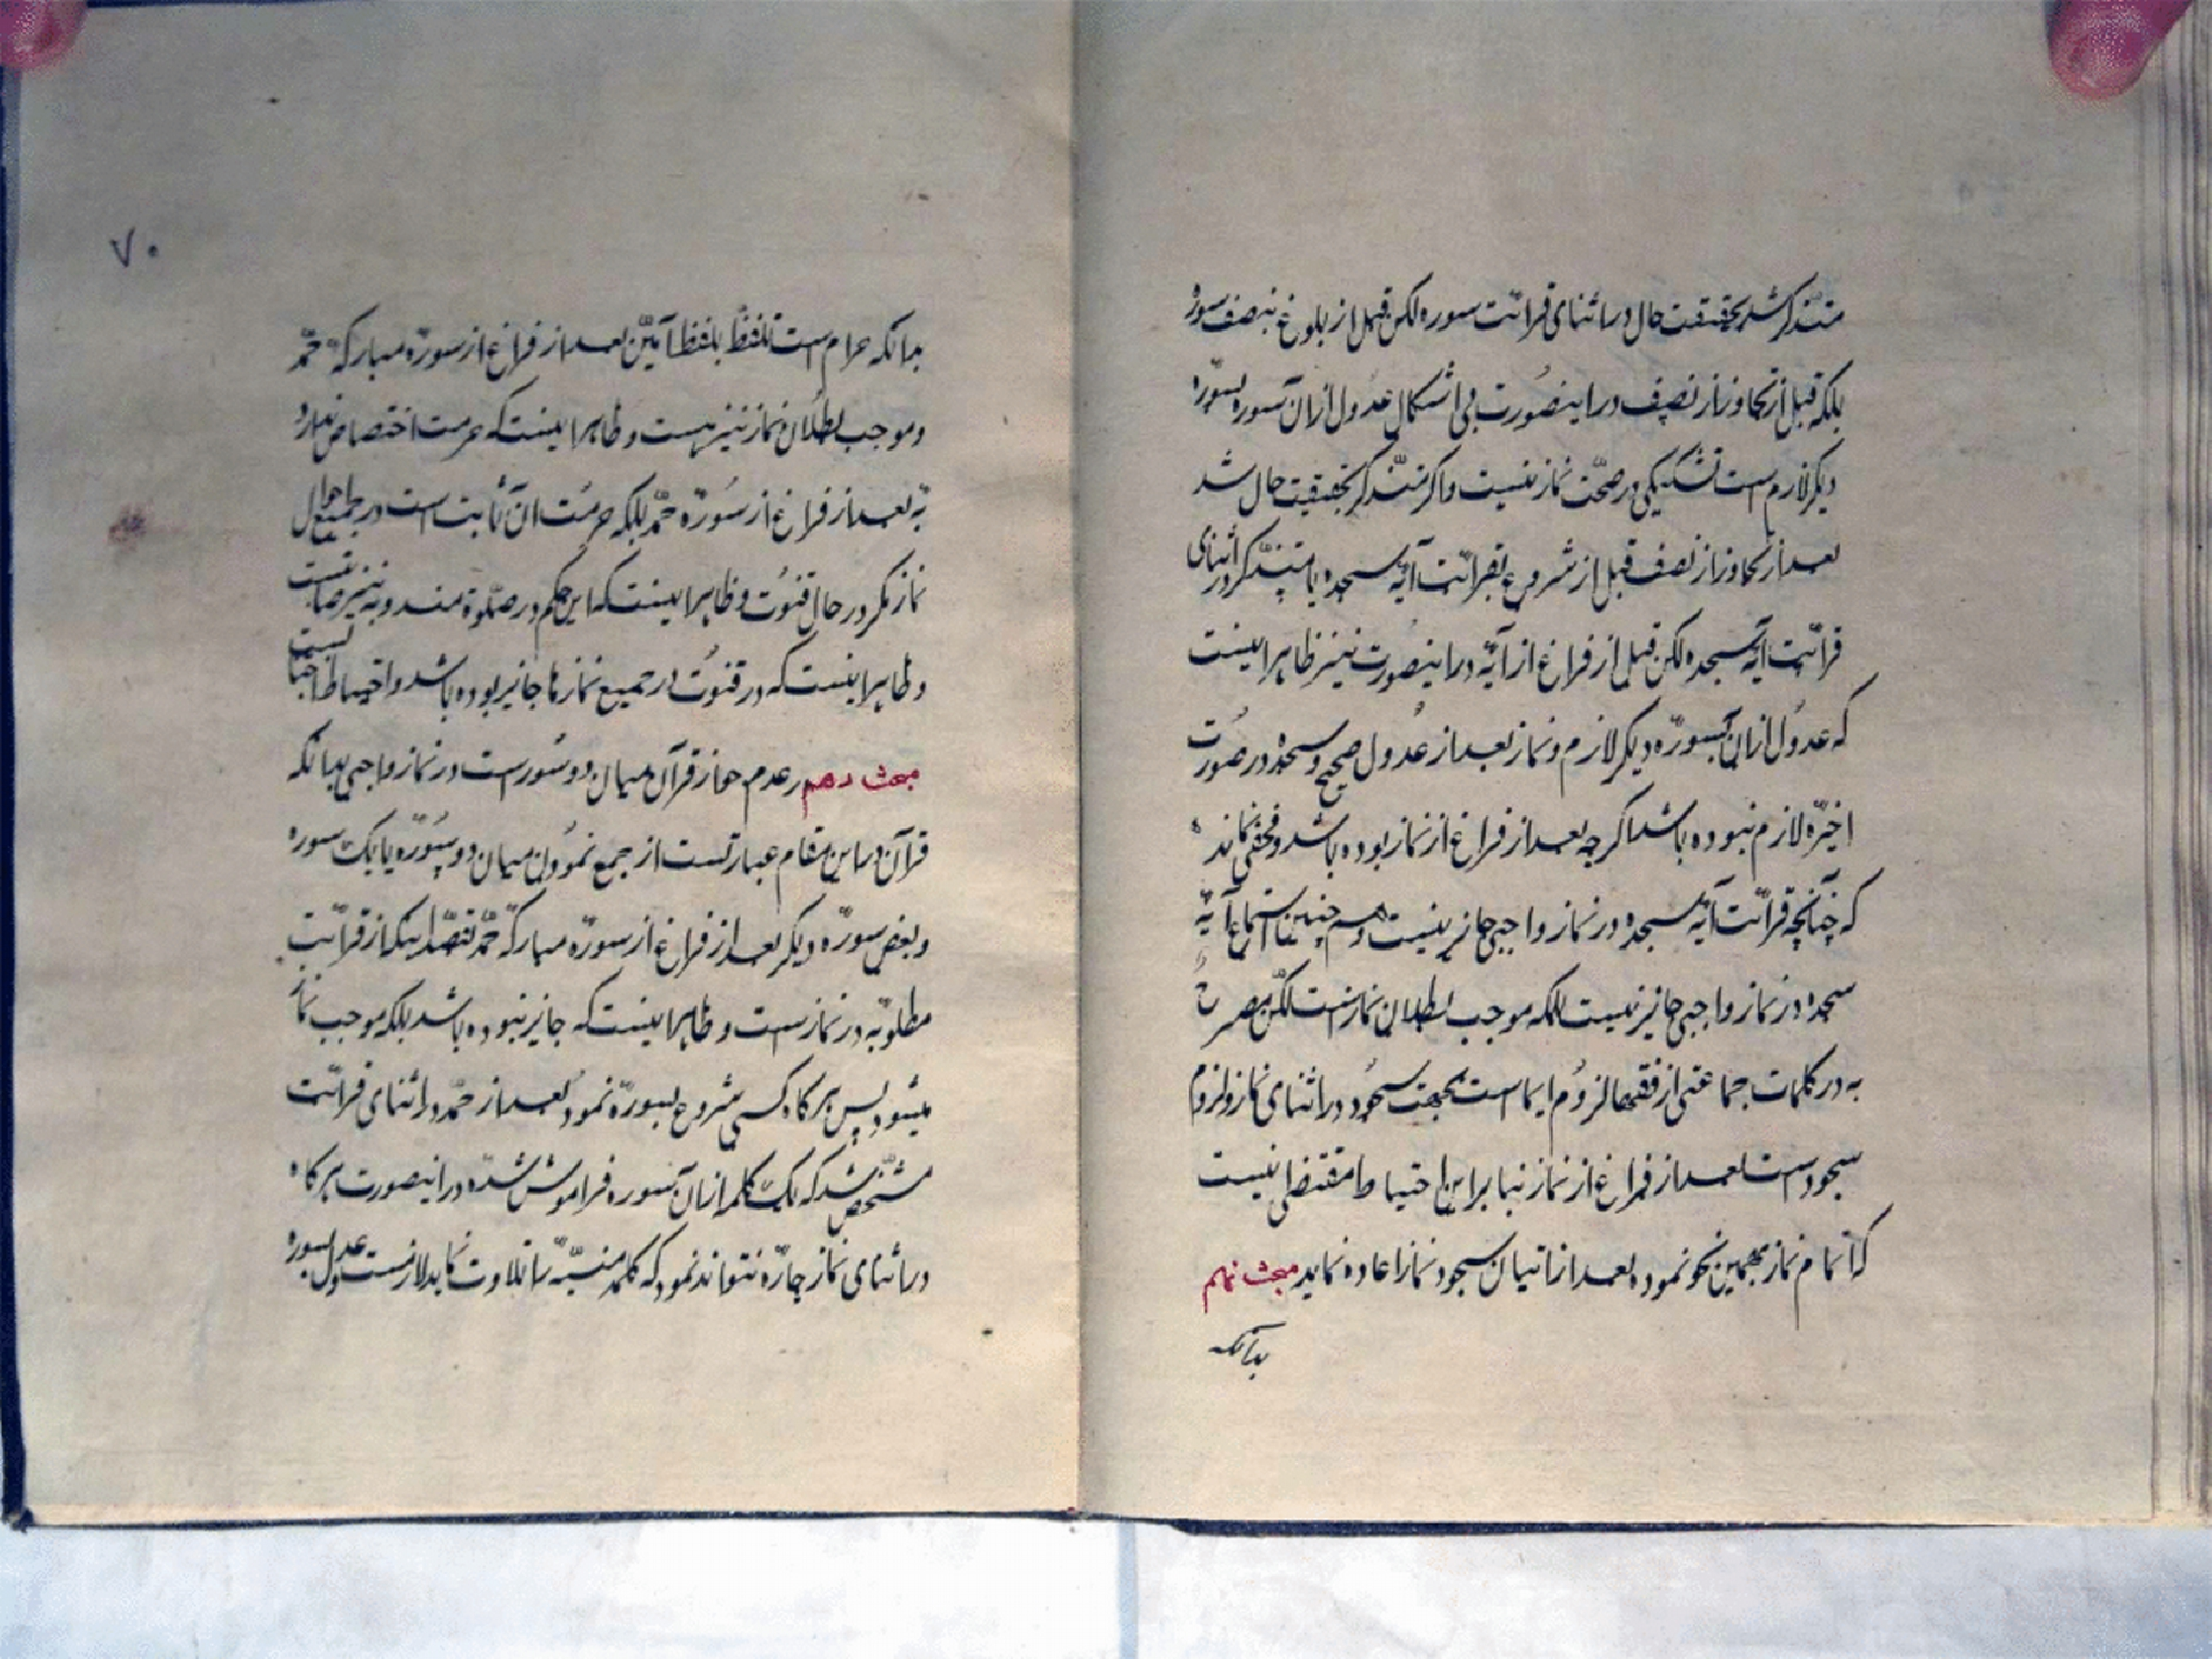 متذکر شد بحقیقت حال در اثنای قرائت سوره لکن قبل از بلوغ بنصف سوره
بلکه قبل از تجاوز از نصف در اینصورت بی اشکال عدول از ان سوره بسوره
دیکر لازم است تشکیکی در صحّت نماز نیست و اکر متذکر بحقیقت حال شد
بعد از تجاوز از نصف قبل از شروع بقرائت آیه سجده یا متذکر در اثنای
قرائت آیه سجده لکن قبل از فراغ از آیه در اینصورت نیز ظاهر اینست
که عدول از ان بسوره دیکر لازم و نماز بعد از عدول صحیح و سجده در صورت
اخیره لازم نبوده باشد اکر چه بعد از فراغ از نماز بوده باشد و مخفی نماند
که چنانچه قرائت آیه سجده در نماز واجبی جایز نیست و هم چنین استماع آیه
سجده در نماز واجبی جایز نیست بلکه موجب بطلان نماز است لکن مصرح
به در کلمات جماعتی از فقها لزوم ایما است بجهت سجود در اثنای نماز و لزوم
سجود است بعد از فراغ از نماز بنابراین احتیاط مقتضی اینست
که اتمام نماز بهمین نحو نموده بعد از اتیان سجود نماز را اعاده نماید مبحث نهم
بدانکه
۷۰
بدانکه حرام است تلفظ بلفظ آمین بعد از فراغ از سوره مبارکه حمد
و موجب بطلان نماز نیز هست و ظاهر اینست که حرمت اختصاص ندارد
به بعد از فراغ از سوره حمد بلکه حرمت ان ثابت است در جمیع احوال
نماز مکر در حال قنوت و ظاهر اینست که این حکم در صلوة مندوبه نیز ثابت
و ظاهر اینست که در قنوت در جمیع نمازها جایز بوده باشد و احتیاط اجتناب است
مبحث دهم در عدم جواز قرآن میان دو سوره است در نماز واجبی بدانکه
قرآن در این مقام عبارتست از جمع نمودن میان دو سوره یا یک سوره
و بعض سوره دیکر بعد از فراغ از سوره مبارکه حمد بقصد اینکه از قرائت
مطلوبه در نماز است و ظاهر اینست که جایز نبوده باشد بلکه موجب نماز
میشود پس هر کاه کسی شروع بسوره نمود بعد از حمد در اثنای قرائت
مشخص شد که یک کلمه از ان سوره فراموش شده در اینصورت هر کاه
در اثنای نماز چاره نتواند نمود که کلمه منسیّه را تلاوت نماید لازمست عدول بسوره